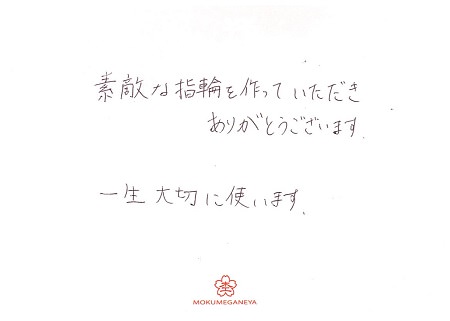 素敵な指輪を作っていただき
ありがとうございます.
一生大切に使います.
MOKUMEGANEYA